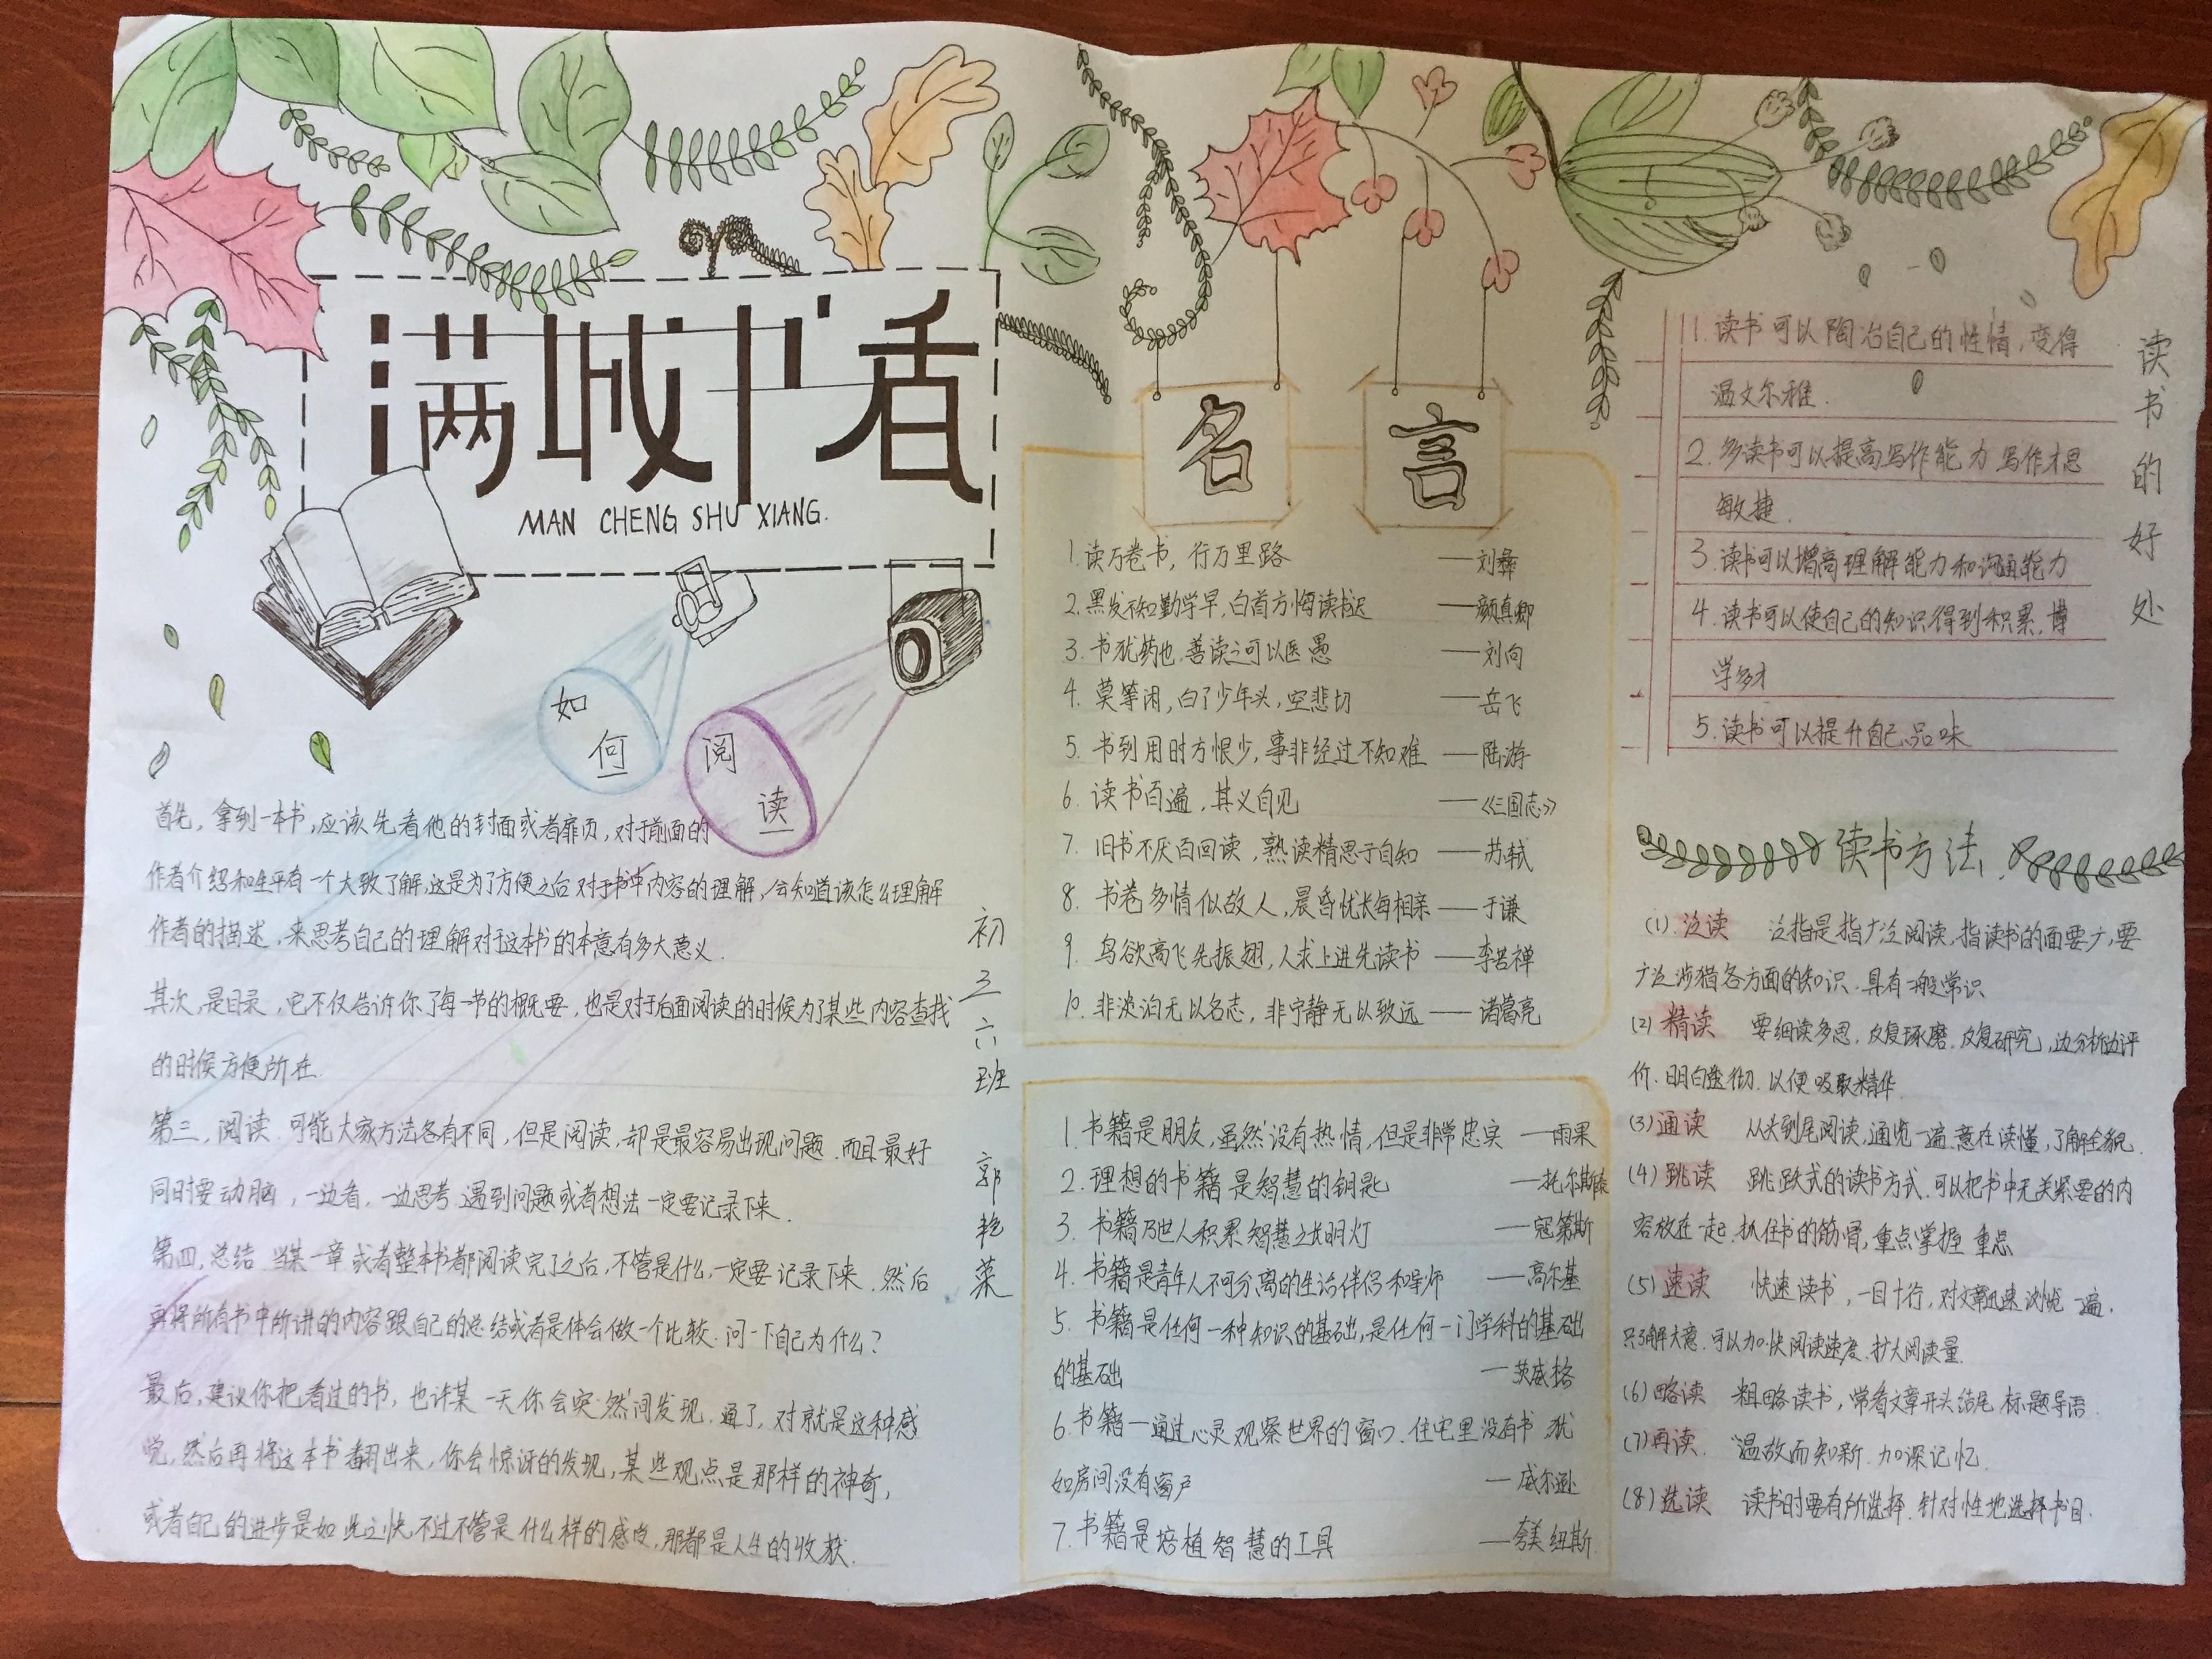 满城书香
MAN CHENG SHU XIANG.
如何
阅读
首先,拿到一本书,应该先看他的封面或者扉页,对于前面的
作者介绍和生平有一个大致了解,这是为了方便之后对于书中内容的理解,会知道该怎么理解
作者的描述,来思考自己的理解对于这本书的本意有多大意义.
其次,是目录,它不仅告诉你了每一书的概要,也是对于后面阅读的时候为了某些内容查找
的时候方便所在.
第三,阅读.可能大家方法各有不同,但是阅读,却是最容易出现问题.而且最好
同时要动脑,一边看,一边思考.遇到问题或者想法一定要记录下来.
第四,总结.当某一章或者整本书都阅读完了之后,不管是什么,一定要记录下来.然后
再将所有书中所讲的内容跟自己的总结或者是体会做一个比较.问一下自己为什么?
最后,建议你把看过的书,也许某一天你会突然间发现.通了,对就是这种感
觉,然后再将这本书翻出来,你会惊讶的发现,某些观点是那样的神奇,
或者自己的进步是如此之快.不过不管是什么样的感度,那都是人生的收获.
初三六班
郭艳菜
名言
1.读万卷书,行万里路——刘彝
2.黑发不知勤学早,白首方悔读书迟——颜真卿
3.书犹药也,善读之可以医愚——刘向
4.莫等闲,白了少年头,空悲切——岳飞
5.书到用时方恨少,事非经过不知难——陆游
6.读书百遍,其义自见——《三国志》
7.旧书不厌百回读,熟读精思子自知——苏轼
8.书卷多情似故人,晨昏忧长每相亲——于谦
9.鸟欲高飞先振翅,人求上进先读书——李苦禅
10.非淡泊无以名志,非宁静无以致远——诸葛亮
1.书籍是朋友,虽然没有热情,但是非常忠实——雨果
2.理想的书籍是智慧的钥匙——托尔斯泰
3.书籍乃世人积累智慧之长明灯——寇第斯
4.书籍是青年人不可分离的生活伴侣和导师——高尔基
5.书籍是任何一种知识的基础,是任何一门学科的基础
的基础——茨威格
6.书籍—通过心灵观察世界的窗口.住宅里没有书.犹
如房间没有窗户——威尔逊
7.书籍是培植智慧的工具——夸美纽斯
读书的好处
1.读书可以陶冶自己的性情,变得
温文尔雅.
2.多读书可以提高写作能力 写作才思
敏捷.
3.读书可以增高理解能力和沟通能力
4.读书可以使自己的知识得到积累,博
学多才
5.读书可以提升自己品味
读书方法.
(1).泛读 泛指是指广泛阅读,指读书的面要广,要
广泛涉猎各方面的知识.具有一般常识
(2)精读 要细读多思,反复琢磨.反复研究,边分析边评
价.明白透彻.以便吸取精华.
(3)通读 从头到尾阅读,通览一遍.意在读懂,了解全貌.
(4)跳读 跳跃式的读书方式.可以把书中无关紧要的内
容放在一起.抓住书的筋骨,重点掌握 重点
(5)速读 快速读书,一目十行,对文章迅速浏览一遍.
只了解大意.可以加快阅读速度.扩大阅读量.
(6)略读 粗略读书,常看文章开头结尾.标题导语.
(7)再读. 温故而知新.加深记忆.
(8)选读 读书时要有所选择.针对性地选择书目.